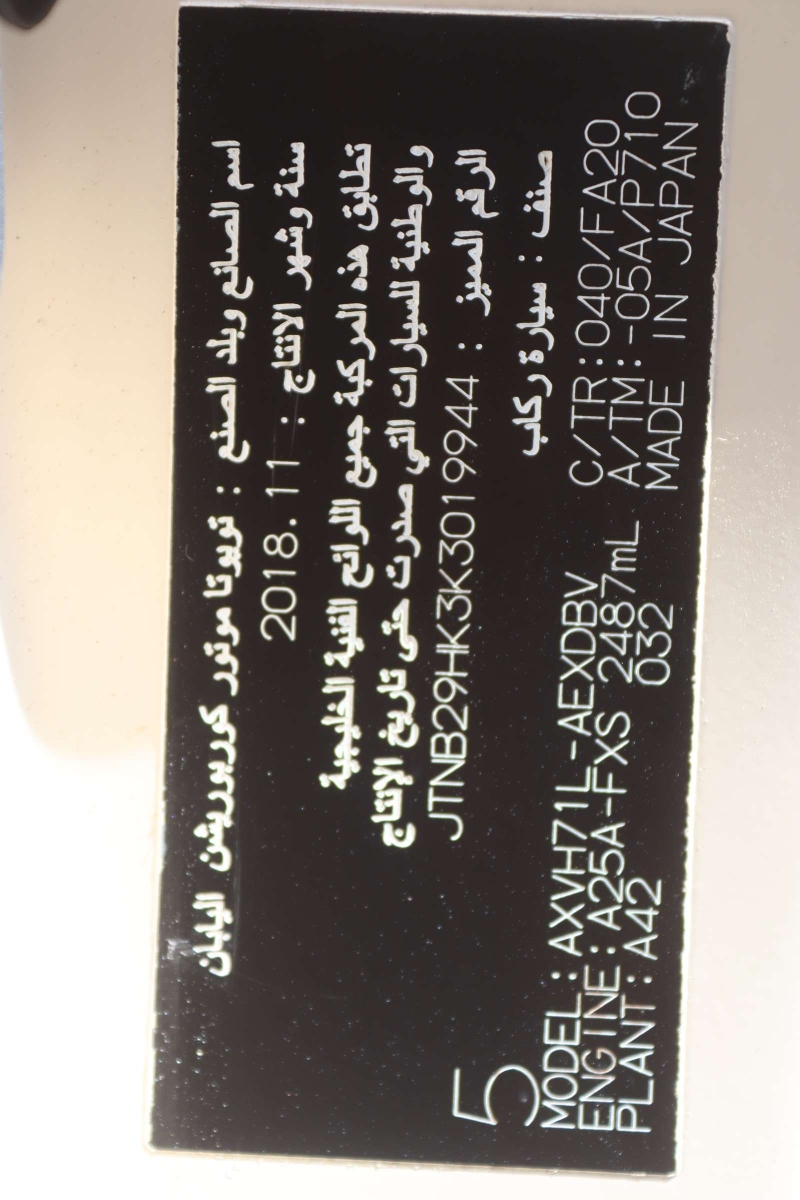 اسم الصانع وبلد الصنع : تويوتا موتور كوربوريشن اليابان
سنة وشهر الانتاج : 2018.11
تطابق هذه المركبة جميع اللوائح الفنية الخليجية
والوطنية للسيارات التي صدرت حتى تاريخ الإنتاج
الرقم المميز : JTNB29HK3K3019944
صنف : سيارة ركاب
5
MODEL : AXVH71L-AEXDBV C/TR:040/FA20
ENGINE : A25A-FXS 2487mL A/TM:-05A/P710
PLANT : A42 032 MADE IN JAPAN